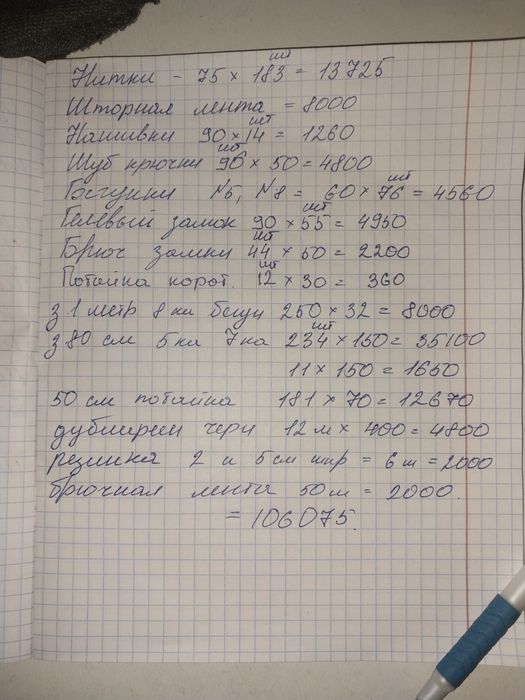 Нитки - 75 × 183 шт = 13725
Шторная лента = 8000
Нашивки 90 × 14 шт = 1260
Шуб крючки 96 шт × 50 = 4800
Бегунки N5, N8 = 60 × 76 шт = 4560
Гелевый замок 90 × 55 шт = 4950
Брюч замки 44 шт × 50 = 2200
Потайка корот. 12 шт × 30 = 360
з 1 метр 8 ка бегун 250 × 32 = 8000
з 80 см 5 ка 7 ка 234 шт × 150 = 35100
11 × 150 = 1650
50 см потайка 181 × 70 = 12670
дублирен черн 12 м × 400 = 4800
резинка 2 и 5 см шир = 6 ш = 2000
брючная лента 50 м = 2000.
= 106075.